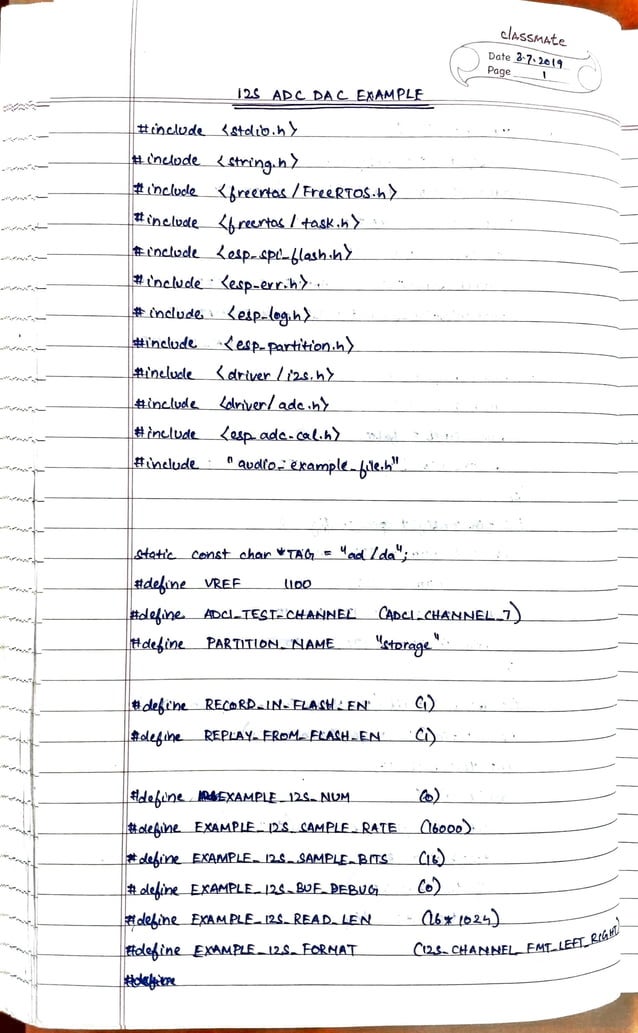 classmate
Date 3.7.2019
Page 1
I2S ADC DAC EXAMPLE
#include <stdio.h>
#include <string.h>
#include <freertos/FreeRTOS.h>
#include <freertos/task.h>
#include <esp_spi_flash.h>
#include <esp_err.h>
#include <esp_log.h>
#include <esp_partition.h>
#include <driver/i2s.h>
#include <driver/adc.h>
#include <esp_adc_cal.h>
#include "audio_example_file.h"
static const char *TAG = "ad/da";
#define VREF 1100
#define ADC1_TEST_CHANNEL (ADC1_CHANNEL_7)
#define PARTITION_NAME "storage"
#define RECORD_IN_FLASH_EN (1)
#define REPLAY_FROM_FLASH_EN (1)
#define EXAMPLE_I2S_NUM (0)
#define EXAMPLE_I2S_SAMPLE_RATE (16000)
#define EXAMPLE_I2S_SAMPLE_BITS (16)
#define EXAMPLE_I2S_BUF_DEBUG (0)
#define EXAMPLE_I2S_READ_LEN (16*1024)
#define EXAMPLE_I2S_FORMAT (I2S_CHANNEL_FMT_LEFT_RIGHT)